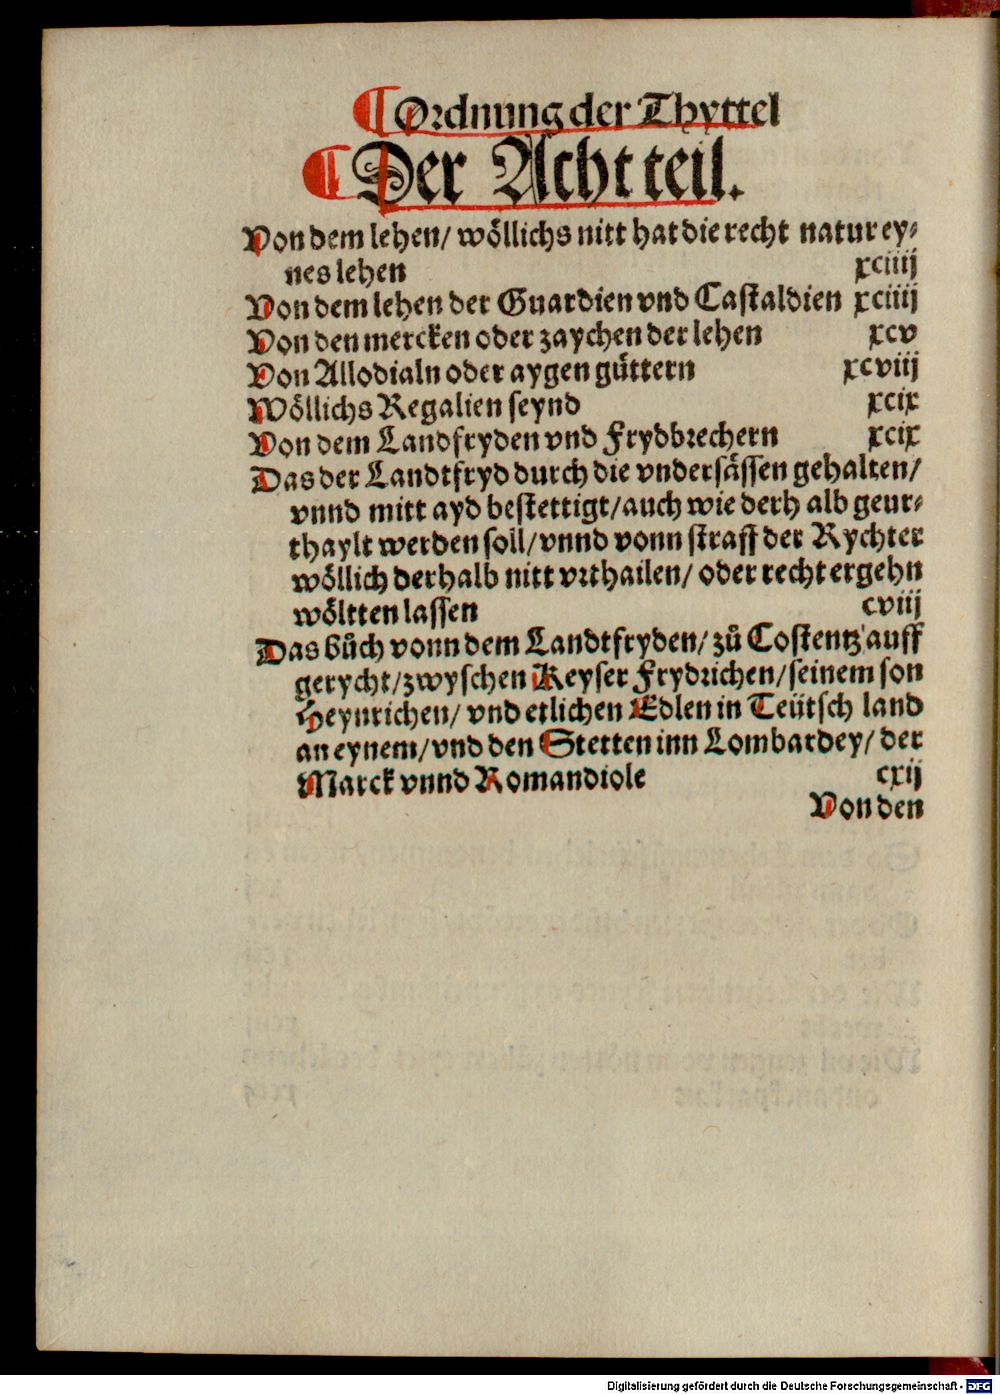 ¶ Ordnung der Thyttel
¶ Der Acht teil.
Von dem lehen/ wöllichs nitt hat die recht natur ey⸗
nes lehen xciiij
Von dem lehen der Guardien vnd Castaldien xciiij
Von den mercken oder zaychen der lehen xcv
Von Allodialn oder aygen güttern xcviij
Wöllichs Regalien seynd xcix
Von dem Landfryden vnd Frydbrechern xcix
Das der Landtfryd durch die vndersässen gehalten/
vnnd mitt ayd bestettigt/ auch wie derh alb geur⸗
thaylt werden soll/ vnnd vonn straff der Rychter
wöllich derhalb nitt vrthailen/ oder recht ergehn
wöltten lassen cviij
Das bůch vonn dem Landtfryden/ zů Costentz auff
gerycht/ zwyschen Keyser Frydrichen/ seinem son
Heynrichen/ vnd etlichen Edlen in Teütsch land
an eynem/ vnd den Stetten inn Lombardey/ der
Marck vnnd Romandiole cxij
Von den
Digitalisierung gefördert durch die Deutsche Forschungsgemeinschaft - DFG